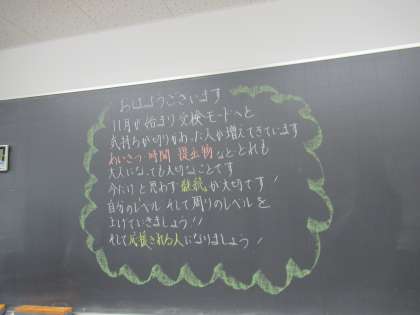 おはようございます
11月が始まり受検モードへと
気持ちが切りかわった人が増えてきています
あいさつ 時間 提出物などどれも
大人になっても大切なことです
今だけと思わず継続が大切です!
自分のレベル そして周りのレベルを
上げていきましょう!!
そして応援される人になりましょう!